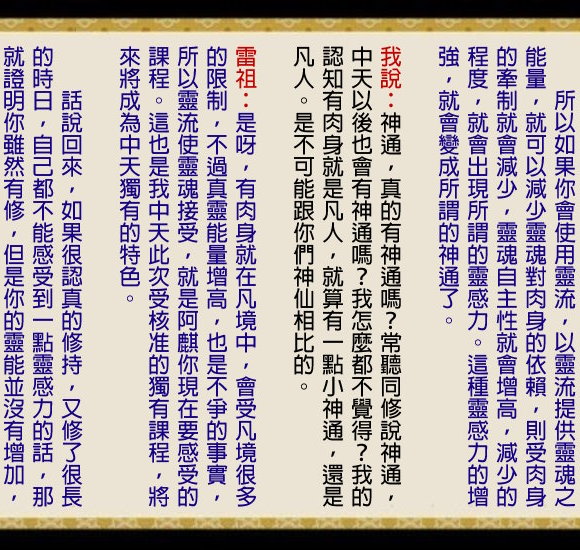 所以如果你會使用靈流，以靈流提供靈魂之
能量，就可以減少靈魂對肉身的依賴，則受肉身
的牽制就會減少，靈魂自主性就會增高，減少的
程度，就會出現所謂的靈感力。這種靈感力的增
強，就會變成所謂的神通了。
我說：神通，真的有神通嗎？常聽同修說神通，
中天以後也會有神通嗎？我怎麼都不覺得？我的
認知有肉身就是凡人，就算有一點小神通，還是
凡人。是不可能跟你們神仙相比的。
雷祖：是呀，有肉身就在凡境中，會受凡境很多
的限制，不過真靈能量增高，也是不爭的事實，
所以靈流使靈魂接受，就是阿麒你現在要感受的
課程。這也是我中天此次受核准的獨有課程，將
來將成為中天獨有的特色。
話說回來，如果很認真的修持，又修了很長
的時日，自己都不能感受到一點靈感力的話，那
就證明你雖然有修，但是你的靈能並沒有增加，